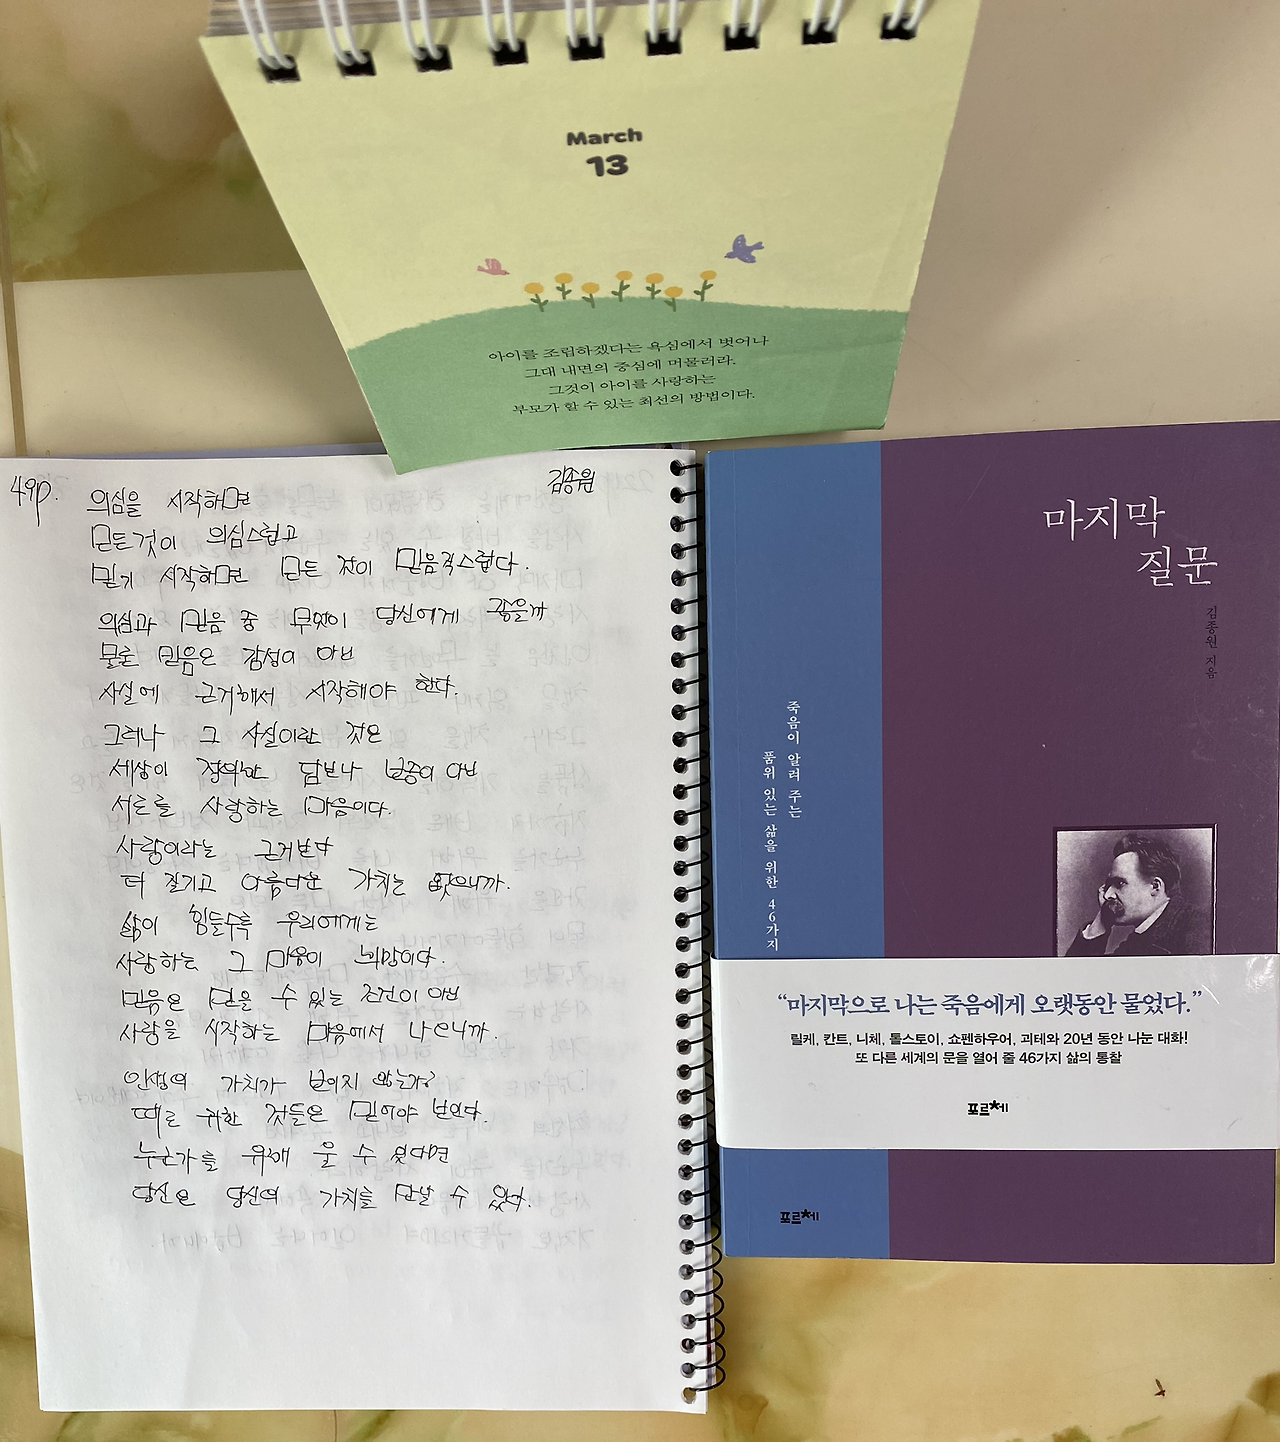 March
13
아이를 조립하겠다는 욕심에서 벗어나
그대 내면의 중심에 머물러라.
그것이 아이를 사랑하는
부모가 할 수 있는 최선의 방법이다.
49p.
김종원
의심을 시작하면
모든것이 의심스럽고
믿기 시작하면 모든 것이 믿음직스럽다.
의심과 믿음 중 무엇이 당신에게 좋을까
물론 믿음은 감성이 아닌
사실에 근거해서 시작해야 한다.
그러나 그 사실이란 것은
세상이 정의한 답보다 보증이 아닌
서로를 사랑하는 마음이다.
사랑이라는 근거보다
더 질기고 아름다운 가치는 없으니까.
삶이 힘들수록 우리에게는
사랑하는 그 마음이 희망이다.
믿음은 믿을 수 있는 조건이 아닌
사랑을 시작하는 마음에서 나오니까.
인생의 가치가 보이지 않는가?
때로 귀한 것들은 믿어야 보인다.
누군가를 위해 울 수 있다면
당신은 당신의 가치를 만날 수 있다.
마지막
질문
김종원 지음
죽음이 알려 주는
품위 있는 삶을 위한 46가지
“마지막으로 나는 죽음에게 오랫동안 물었다.”
릴케, 칸트, 니체, 톨스토이, 쇼펜하우어, 괴테와 20년 동안 나눈 대화!
또 다른 세계의 문을 열어 줄 46가지 삶의 통찰
포르체
포르체